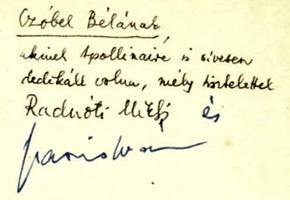 Czóbel Bélának,
akinek Apollinaire is szivesen
dedikált volna, mély tisztelettel
Radnóti Miklós és